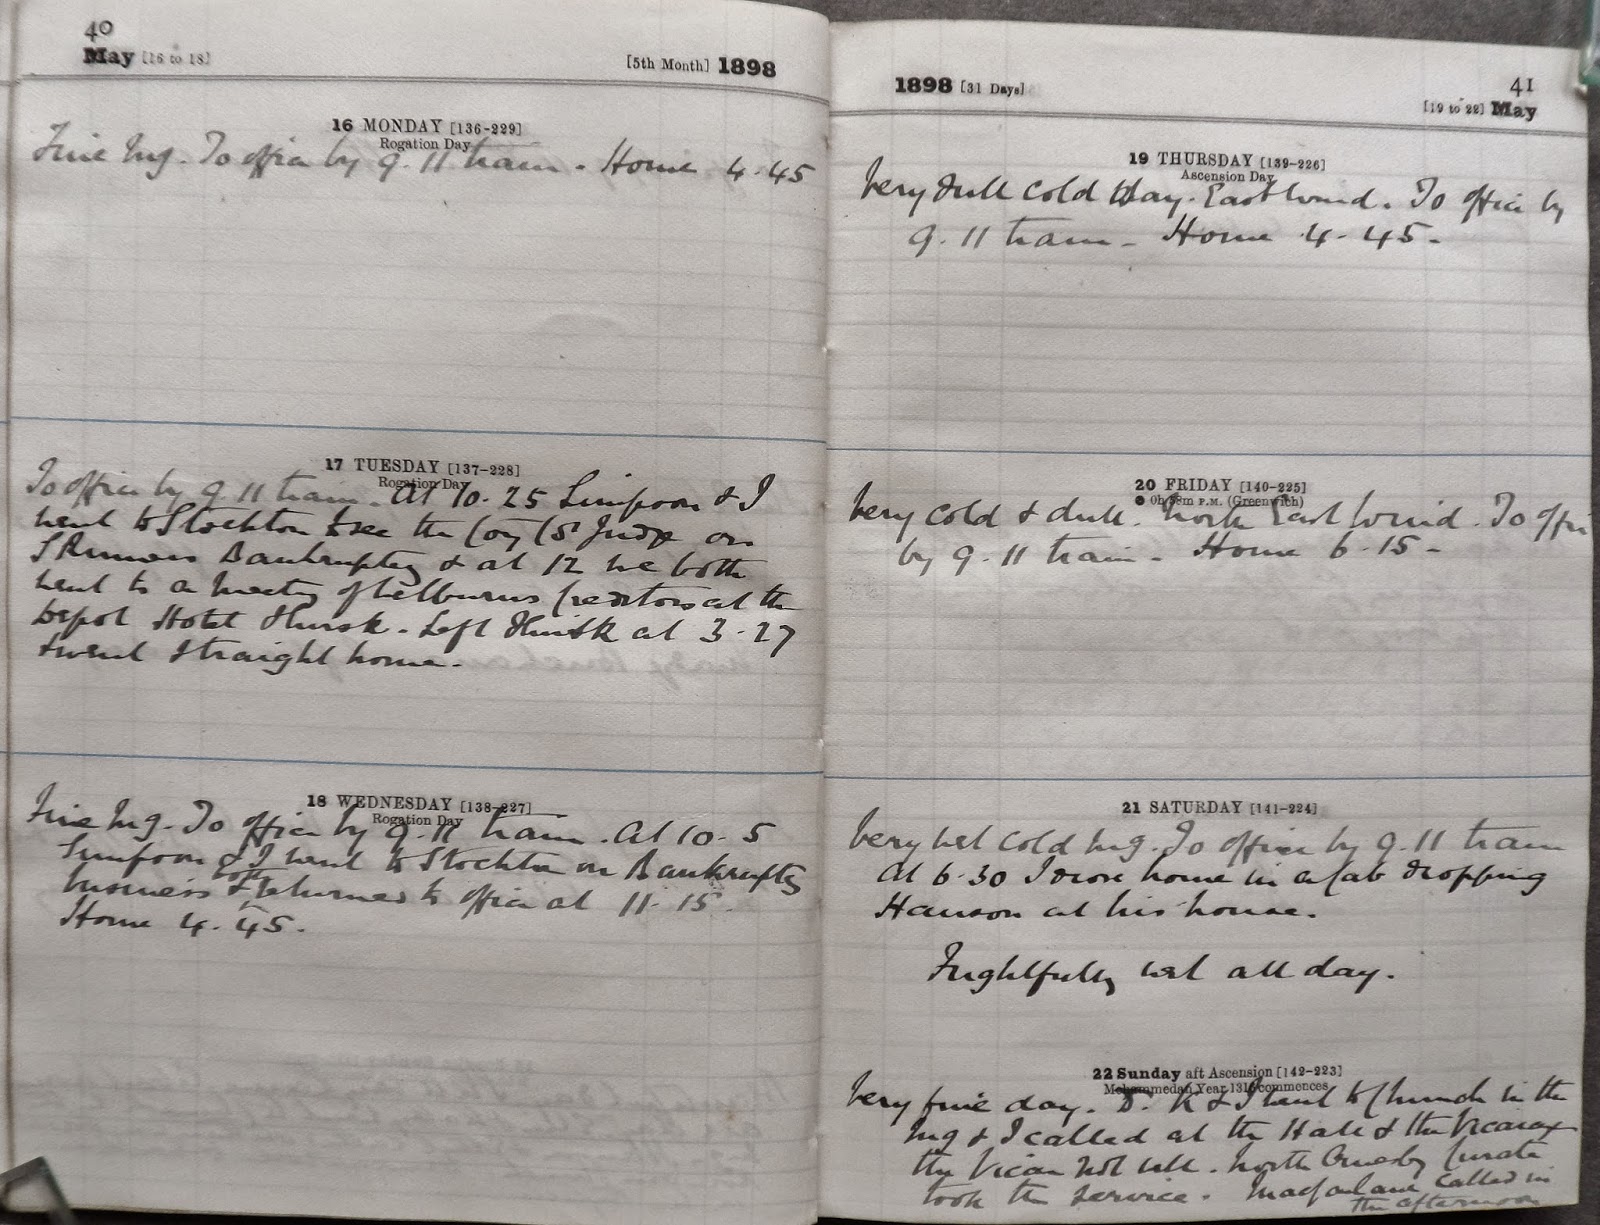 40
May [16 to 18] [5th Month] 1898
16 MONDAY [136-229]
Rogation Day
Fine Mg. To office by 9.11 train. Home 4.45
17 TUESDAY [137-228]
Rogation Day
To office by 9.11 train. At 10.25 Simpson & I
went to Stockton to see the Coy Ct Judge on
Bankruptcy & at 12 we both
went to a meeting of Creditors at the
Depot Hotel Thirsk. Left Thirsk at 3.27
& went straight home.
18 WEDNESDAY [138-227]
Rogation Day
Fine Mg. To office by 9.11 train. At 10.5
Simpson & I went to Stockton on Bankruptcy
business & both returned to office at 11.15.
Home 4.45.
1898 [31 Days] 41
[19 to 22] May
19 THURSDAY [139-226]
Ascension Day
Very dull cold day. East wind. To office by
9.11 train. Home 4.45.
20 FRIDAY [140-225]
● 0h 58m P.M. (Greenwich)
Very cold & dull. North East wind. To office
by 9.11 train. Home 6.15.
21 SATURDAY [141-224]
Very wet cold Mg. To office by 9.11 train
At 6.30 I drove home in a Cab dropping
Hanson at his house.
Frightfully wet all day.
22 Sunday aft Ascension [142-223]
Mohammedan Year 1316 commences
Very fine day. K & I went to Church in the
Mg & I called at the Hall & the Vicarage
the Vicar not well. North Ormesby Curate
took the service. Macfarlane called in
the afternoon